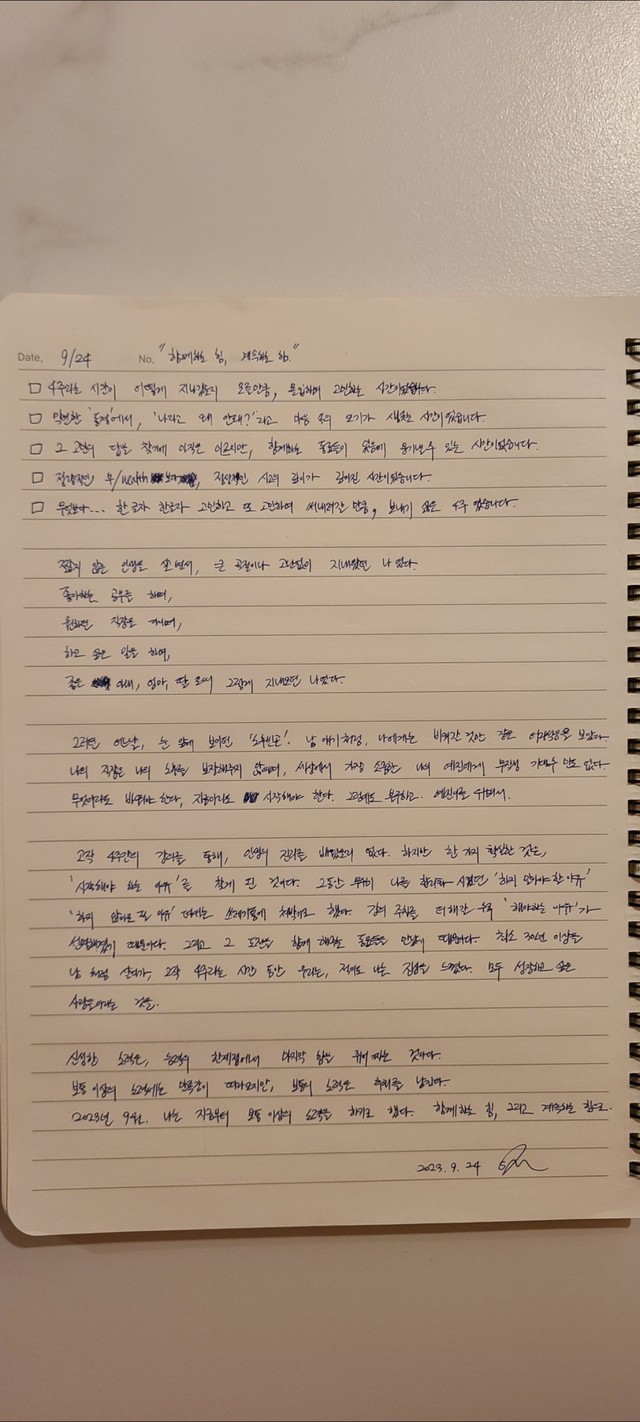 Date. 9/24 No. "함께하는 힘, 계속하는 힘."
□ 4주라는 시간이 어떻게 지나갔는지 모를만큼, 몰입하며 고민하는 시간이었습니다.
□ 막연한 '동경'에서, '나라고 왜 안돼?'라고 마음 속의 오기가 생겼던 시간이었습니다.
□ 그 고민의 답을 찾기에 아직은 이르지만, 함께하는 동료들이 있음에 용기낼 수 있는 시간이었습니다.
□ 정량적인 부/wealth 보다, 정신적인 사고의 깊이가 깊어진 시간이었습니다.
□ 무엇보다... 한 글자 한글자 고민하고 또 고민하며 써내려간 만큼, 보내기 싫은 4주 였습니다.
짧지 않은 인생을 살면서, 큰 굴곡이나 고난없이 지내왔던 나 였다.
좋아하는 공부를 하며,
원하던 직장을 다니며,
하고 싶은 일을 하며,
좋은 아내, 엄마, 딸 로써 그렇게 지내오던 나였다.
그러던 어느날, 눈 앞에 보이던 '노후빈곤'. 남 얘기처럼, 나에게는 비켜간 것만 같은 이야기들을 보았다.
나의 직장은 나의 노후를 보장해주지 않으며, 세상에서 가장 소중한 나의 예진에게 무작정 기댈수 만도 없다.
무엇이라도 바꿔야 한다, 지금이라도 시작해야 한다. 그럼에도 불구하고. 예진이를 위해서.
고작 4주간의 강의를 통해, 인생의 진리를 배웠는지 없다. 하지만 한 가지 확실한 것은,
'시작해야 하는 이유'를 찾게 된 것이다. 그동안 무수히 나를 합리화 시켰던 '하지 말아야 한 이유'
'하지 않아도 될 이유' 따위는 쓰레기통에 처박기로 했다. 강의 주차를 더해간 수록 '해야하는 이유'가
선명해졌기 때문이다. 그리고 그 도전을 함께 해줄 동료들을 만났기 때문이다. 최소 30년 이상을
남 처럼 살다가, 고작 4주라는 시간 동안 우리는, 적어도 나는 진심을 느꼈다. 모두 성장하고 싶은
사람들이라는 것을.
진정한 노력은, 능력의 한계점에서 마지막 힘을 쥐어 짜는 것이다.
보통 이상의 노력에는 만족감이 따라오지만, 보통의 노력은 후회를 남긴다.
2023년 9월. 나는 지금부터 보통 이상의 노력을 하기로 했다. 함께하는 힘, 그리고 계속하는 힘으로.
2023. 9. 24